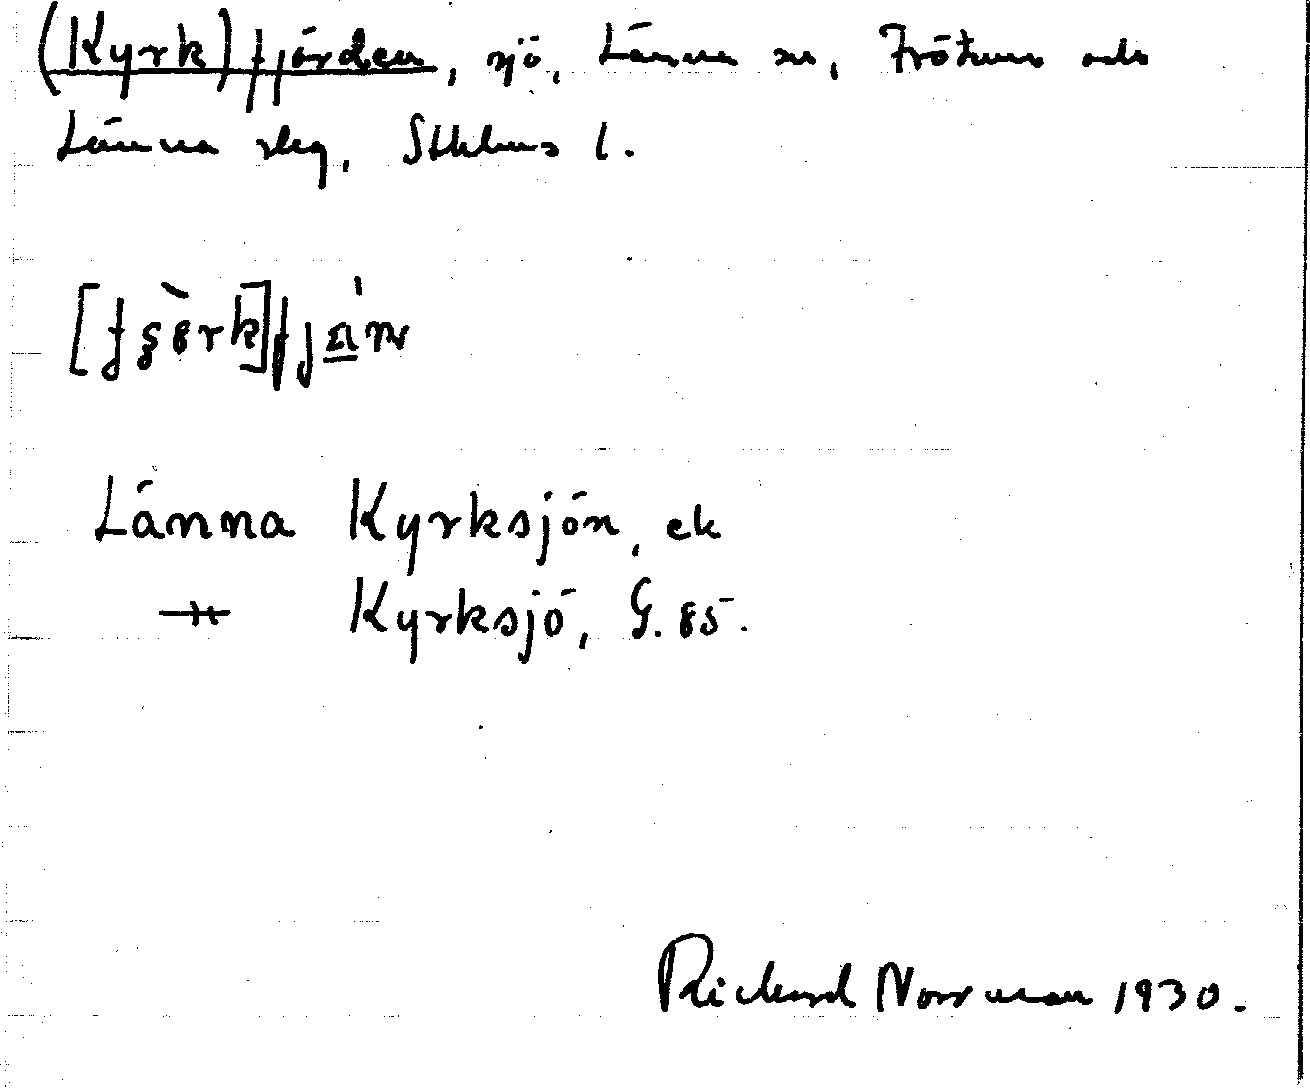 (Kyrk)fjärden, sjö, Länna sn, Frötuna och
Länna skg, Sthlms l.
Länna Kyrksjön, ek
–"– Kyrksjö, G. 85.
Rickard Norrman 1930.